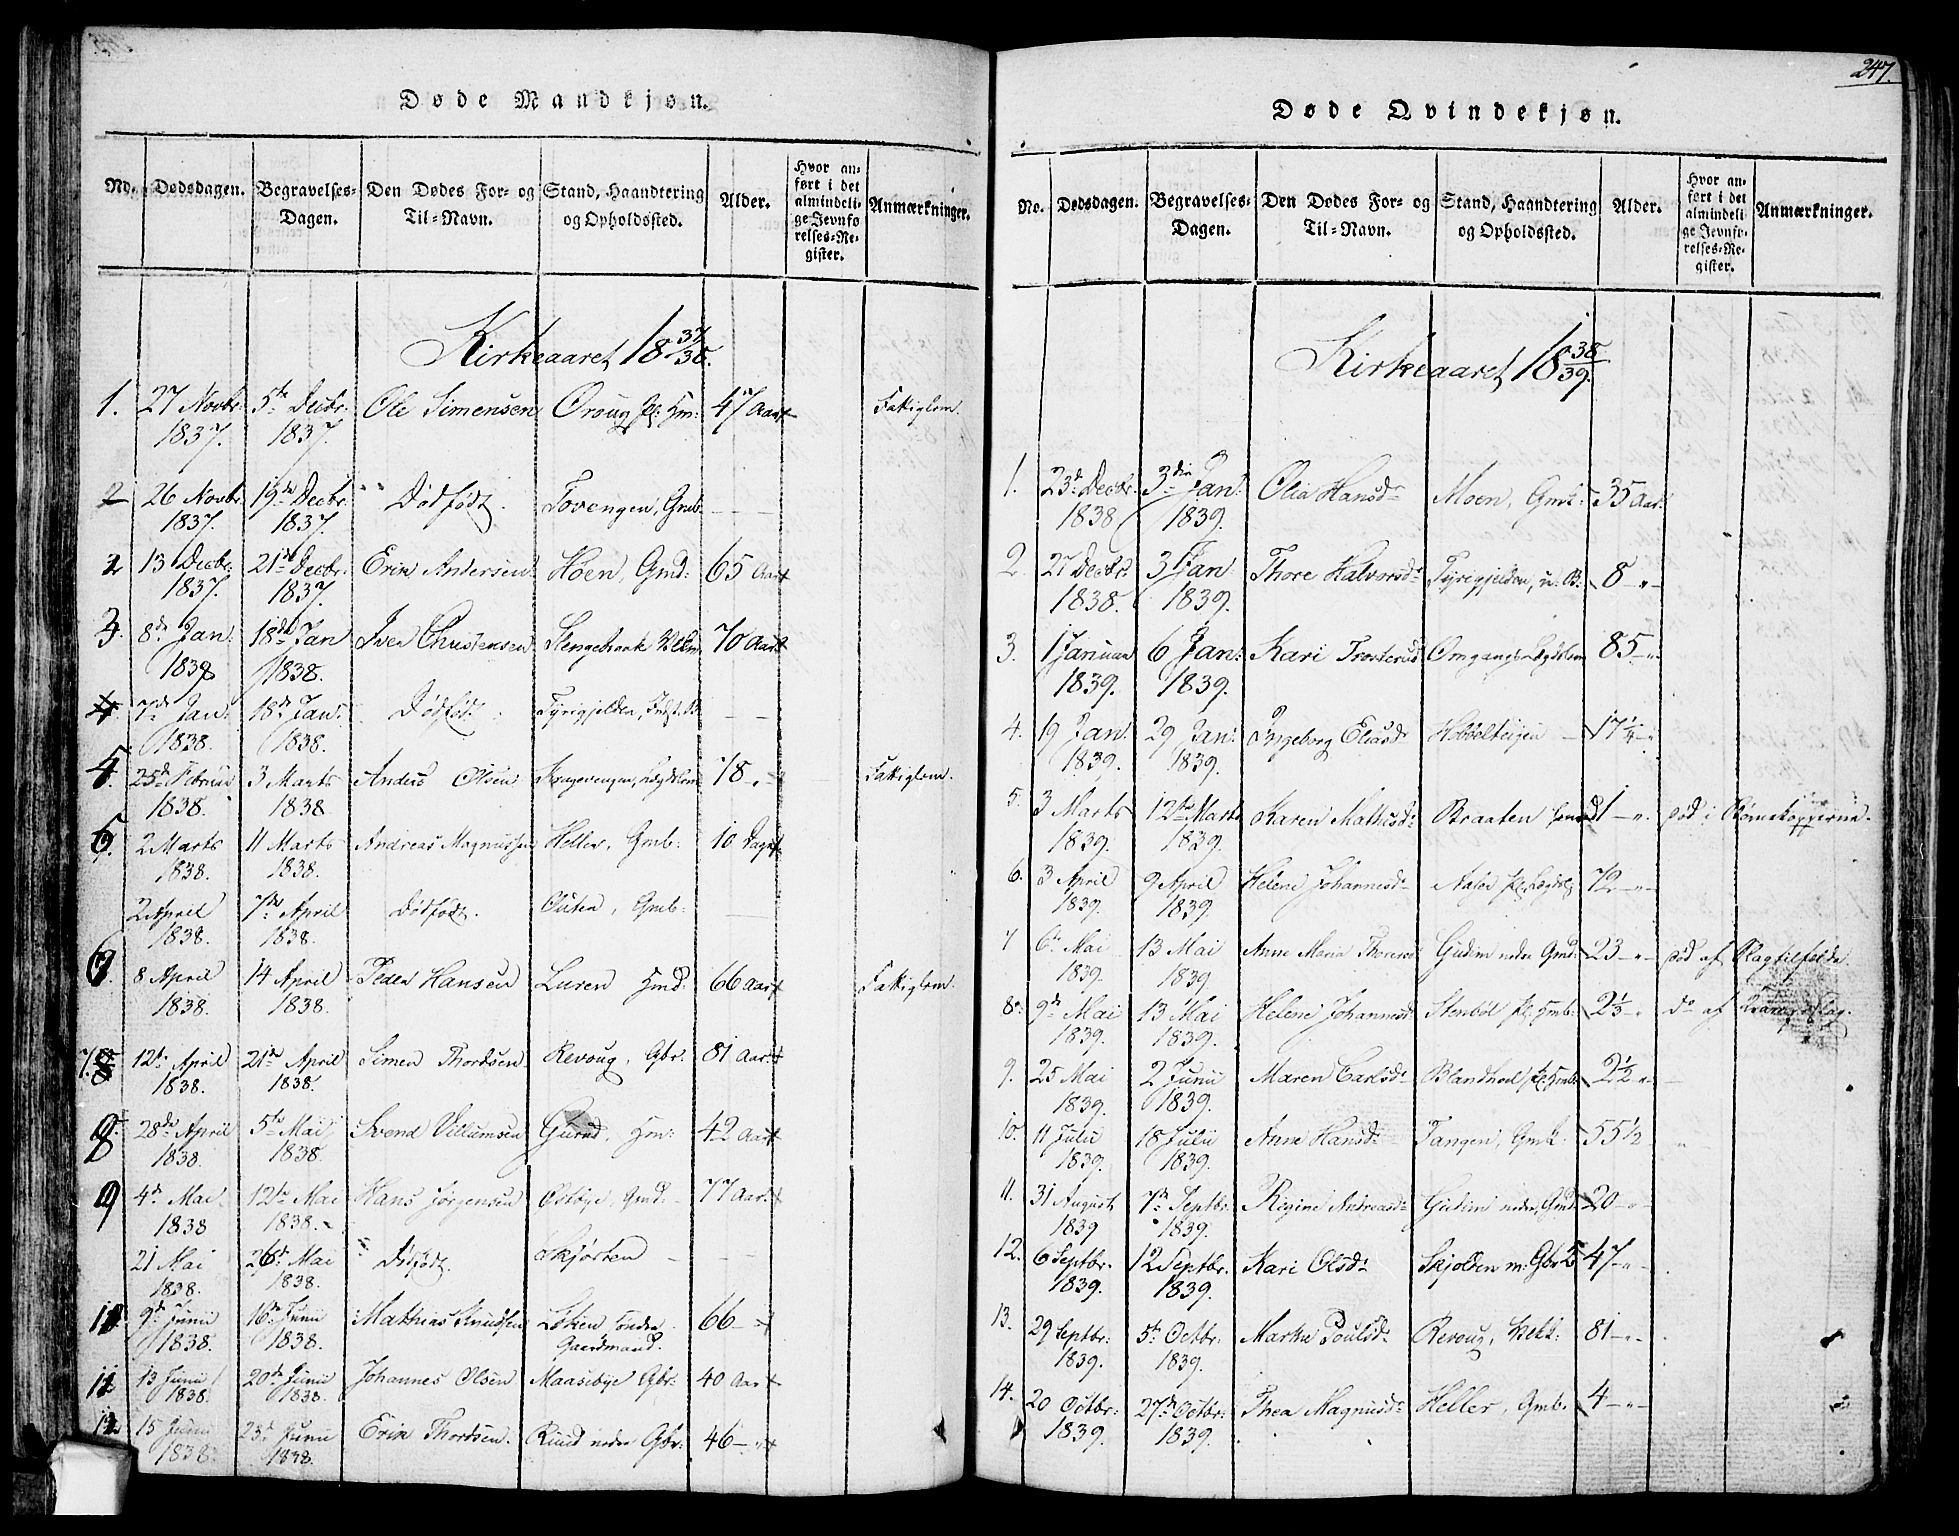 Døde Mandkjøn.
No. Dødsdagen. Begravelses-Dagen. Den Dødes For- og Til-Navn. Stand, Haandtering og Opholdssted. Alder. Hvor anført i det almindelige Jevnførelses-Register. Anmærkninger.
Kirkeaaret 18 37/38.
1. 27 Novbr: 5te Decbr: Ole Simensen Oroug pl: Hm: 47 Aar Fattiglem.
1837. 1837.
2 26 Novbr. 19de Decbr. Dødfødt. Tovengen, Gmb. — —
1837. 1837.
2 13 Decbr. 21de Decbr. Erik Andersen Høen, Gmd: 65 Aar
1837. 1837.
3. 8de Jan: 18de Jan Iver Christensen 70 Aar
1838 1838.
4. 7de Jan: 18de Jan: Dødfødt. Tyrigjelden, Indst. — —
1838. 1838.
4. 25de Februar 3 Marts Anders Olsen Lægdslem 78 — " — Fattiglem.
1838. 1838
5. 2 Marts 11 Marts Andreas Magnussen Heller, Gmb: 10 Dage
1838. 1838.
2 April 7de April Dødfødt. Outen, Gmb: —
1838. 1838.
6. 8 April 14 April Peder Hansen Luren Hmd: 66 Aar Fattiglem.
1838. 1838.
7. 12te April 21de April Simen Thordsen Revoug, Gbr. 81 Aar.
1838. 1838.
8 28de April 5te Mai Svend Villumsen Gurud, Hm: 42 Aar
1838. 1838.
9 4de Mai 12te Mai Hans Jørgensen Ostbye, Gmd. 77 Aar.
1838 1838.
21 Mai 26de Mai Dødfødt. Skjørten — —
1838. 1838.
10 9de Junii 16de Junii Mathias Knudsen Løken søndre 66 — " —
1838. 1838. Gaardmand.
11 13 Junii 20de Junii Johannes Olsen Maasebye Gbr: 40 Aar
1838. 1838.
12. 15 Junii 23de Junii Erik Thordsen. Ruud nedre Gbr: 46 — " —
1838. 1838.
247.
Døde Qvindekjøn.
No. Dødsdagen. Begravelses-Dagen. Den Dødes For- og Til-Navn. Stand, Haandtering og Opholdssted. Alder. Hvor anført i det almindelige Jevnførelses-Register. Anmærkninger.
Kirkeaaret 18 38/39.
1. 23de Decbr. 3die Jan: Olia Hansdr Moen, Gmk: 35 Aar.
1838 1839.
2. 27 Decbr: 3 Jan Thore Halvorsdr Tyrigjelden, u. B: 8 — " —
1838. 1839.
3. 1 Januar 6 Jan: Kari Trosterud Omgangs Lægdslem 85 — " —
1839. 1839.
4. 19 Jan: 29 Jan: Ingeborg Eliasdr Hobølteigen — 17 1/4 — "
1839. 1839.
5. 3 Marts 12te Marts Karen Mathisdr Braaten 1 — " død i Børnekopperne.
1839. 1839.
6. 3 April 9 April Helene Johannesdr Aasen pl: Lægdsl 72 — " —
1839. 1839.
7 6te Mai 13 Mai Anne Maria Thoresdr Gudim nedre Gmd: 23 — " — død af Slagtilfælde
1839. 1839.
8. 9de Mai 13 Mai Helene Johannesdr Stenbøl pl: Hmb: 2 1/3 — " do af
1839. 1839.
9. 25 Mai 2 Junii Maren Carlsdr Blandhol pl: Hmb. 2 1/2 — " —
1839. 1839.
10. 11 Julii 18 Julii Anne Hansdr Tangen, Gmk: 55 1/2 "
1839. 1839.
11. 31 August 7de Septbr. Regine Andreasdr Gudim nedre, Gmd: 20 — " —
1839 1839.
12. 6 Septbr. 12 Septbr. Kari Olsdr Skjolden m: Gbr 47 — " —
1839. 1839.
13. 29 Septbr: 5te Octbr. Marthe Poulsdr Revoug, 81 — " —
1839. 1839.
14. 20 Octbr: 27de Octbr: Thea Magnusdr Heller, Gmb. 4 — " —
1839. 1839.